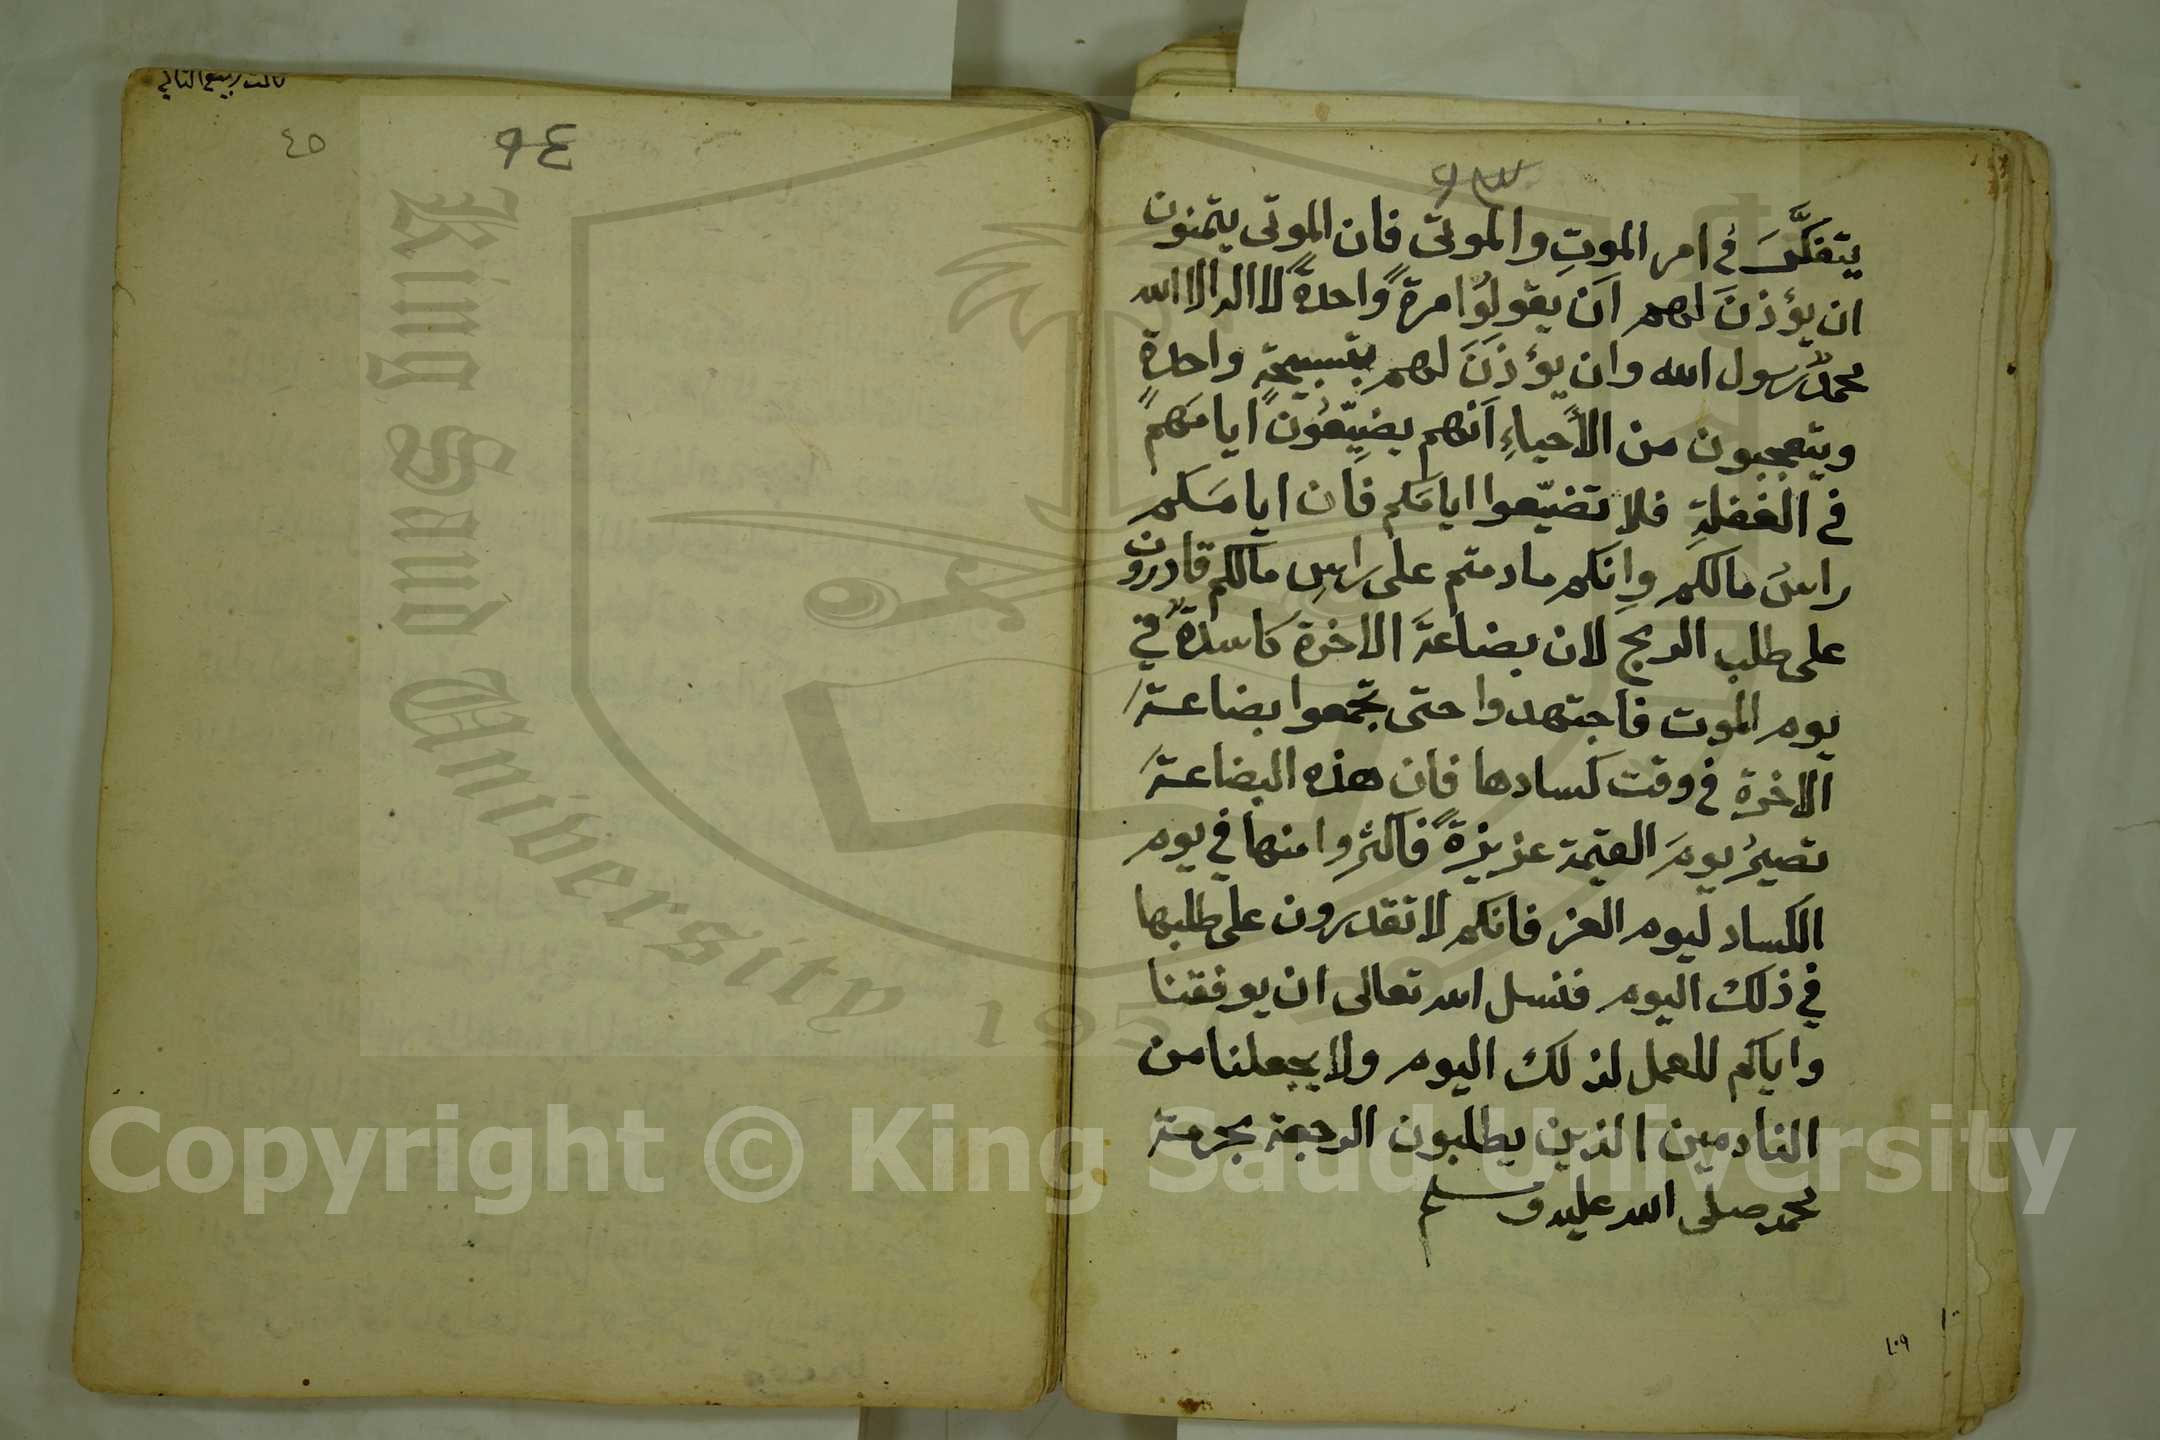 ٩٣
يتفكَّرَ في امر الموتِ والموتى فان الموتى يتمنون
ان يؤذنَ لهم اَن يقولوُا مرةً واحدةً لا اله الا الله
محمدٌ رسول الله وان يؤذَنَ لهم بتسبيحةٍ واحدةٍ
ويتعجبون من الأحياءِ اَنهم يضيّعُون ايامَهم
في الغَفلةِ فلا تضيّعوا ايامَكم فان ايامَكم
راسُ مالكم وإنكم مادمتم على راسِ مالكم قادرون
على طلب الربح لان بضاعةَ الاخرة كاسدةٌ في
يوم الموت فاجتهدوا حتى تجمعوا بضاعة
الاخرة في وقت كَسادها فان هذه البضاعة
تصيرُ يومَ القيمة عزيزةً فاكثروا منها في يوم
الكساد ليوم العز فانكم لا تقدرون على طلبها
في ذلك اليوم فنسل الله تعالى ان يوفقنا
واياكم للعمل لذلك اليوم ولا يجعلنا من
النادمين الذين يطلبون الرجعة بحرمة
محمد صلى الله عليه وسلم
١٠٩
ثالث ربيع الثاني
٤٥
٩٤
King Saud University
1957
Copyright © King Saud University